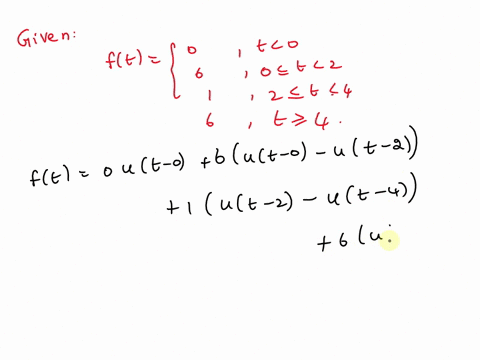 Given:
f(t) = { 0 , t < 0
6 , 0 ≤ t < 2
1 , 2 ≤ t < 4
6 , t ≥ 4 .
f(t) = 0 u(t-0) + 6 (u(t-0) - u(t-2))
+ 1 (u(t-2) - u(t-4))
+ 6 (u